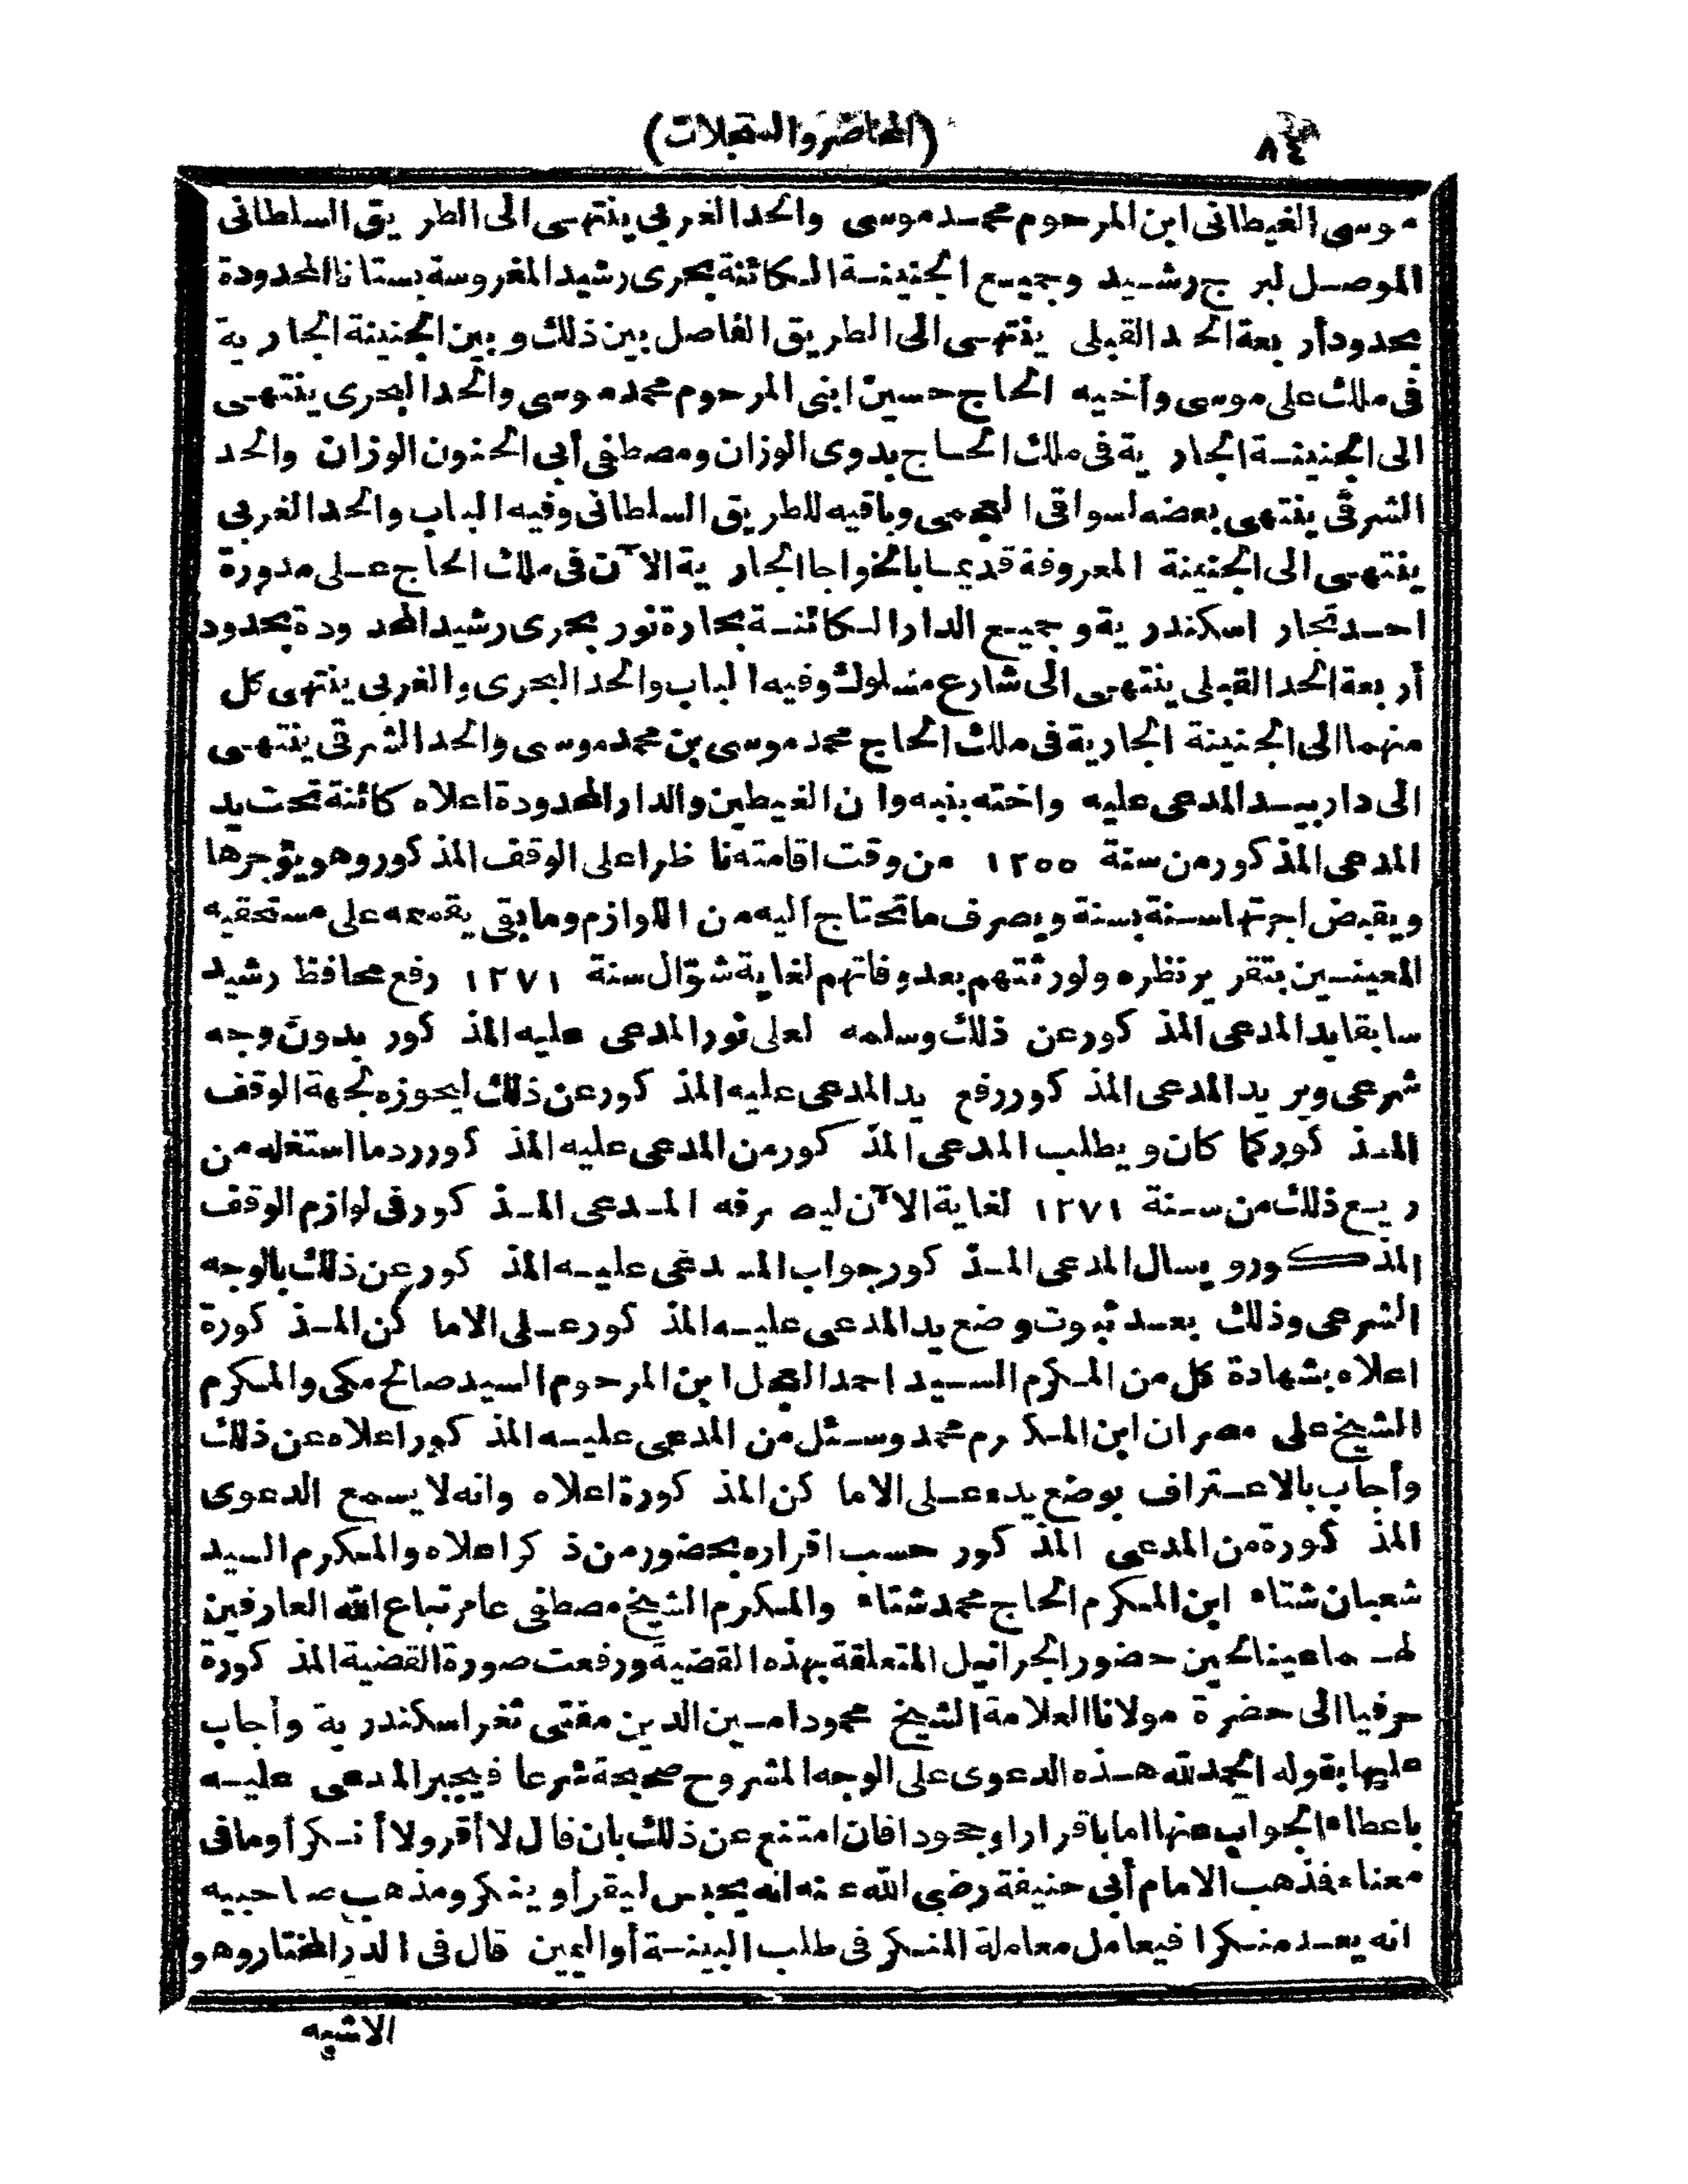 ٨٤
(المحاضر والسجلات)
موسى الغيطانى ابن المرحوم محمد موسى والحد الغربى ينتهى الى الطريق السلطانى
الموصل لبرج رشيد وجميع الجنينة الكائنة بحرى رشيد المغروسة بستانا المحدودة
بحدود أربعة الحد القبلى ينتهى الى الطريق الفاصل بين ذلك وبين الجنينة الجارية
فى ملك على موسى وأخيه الحاج حسين ابنى المرحوم محمد موسى والحد البحرى ينتهى
الى الجنينة الجارية فى ملك الحاج بدوى الوزان ومصطفى أبى الحنون الوزان والحد
الشرقى ينتهى بعضه لسواقى العجمى وباقيه للطريق السلطانى وفيه الباب والحد الغربى
ينتهى الى الجنينة المعروفة قديما بالخواجا الجارية الآن فى ملك الحاج على مدورة
احد تجار اسكندرية وجميع الدار الكائنة بحارة نور بحرى رشيد المحدودة بحدود
أربعة الحد القبلى ينتهى الى شارع مسلوك وفيه الباب والحد البحرى والغربى ينتهى كل
منهما الى الجنينة الجارية فى ملك الحاج محمد موسى بن محمد موسى والحد الشرقى ينتهى
الى دار بيد المدعى عليه واخته بنبه وان الغيطين والدار المحدودة اعلاه كائنة تحت يد
المدعى المذكور من سنة ١٢٥٥ من وقت اقامته ناظرا على الوقف المذكور وهو يؤجرها
ويقبض اجرتها سنة بسنة ويصرف ما تحتاج اليه من اللوازم وما بقى يقسمه على مستحقيه
المعينين بتقرير نظره ولورثتهم بعد وفاتهم لغاية شوّال سنة ١٢٧١ رفع محافظ رشيد
سابقا يد المدعى المذكور عن ذلك وسلمه لعلى نور المدعى عليه المذكور بدون وجه
شرعى ويريد المدعى المذكور رفع يد المدعى عليه المذكور عن ذلك ليحوزه لجهة الوقف
المذكور كما كان ويطلب المدعى المذكور من المدعى عليه المذكور رد ما استغله من
ريع ذلك من سنة ١٢٧١ لغاية الآن ليصرفه المدعى المذكور فى لوازم الوقف
المذكور ويسال المدعى المذكور جواب المدعى عليه المذكور عن ذلك بالوجه
الشرعى وذلك بعد ثبوت وضع يد المدعى عليه المذكور على الاماكن المذكورة
اعلاه بشهادة كل من المكرم السيد احمد العجل ابن المرحوم السيد صالح مكى والمكرم
الشيخ على مصران ابن المكرم محمد وسئل من المدعى عليه المذكور اعلاه عن ذلك
وأجاب بالاعتراف بوضع يده على الاماكن المذكورة اعلاه وانه لا يسمع الدعوى
المذكورة من المدعى المذكور حسب اقراره بحضور من ذكر اعلاه والمكرم السيد
شعبان شتاء ابن المكرم الحاج محمد شتاء والمكرم الشيخ مصطفى عامر تباع الله العارفين
لهما عينا لحين حضور الجرانيل المتعلقة بهذه القضية ورفعت صورة القضية المذكورة
حرفيا الى حضرة مولانا العلامة الشيخ محمود امين الدين مفتى ثغر اسكندرية وأجاب
عليها بقوله الحمد لله هذه الدعوى على الوجه المشروح صحيحة شرعا فيجبر المدعى عليه
باعطاء الجواب عنها اما باقرار او جحود افان امتنع عن ذلك بان قال لا أقر ولا أنكر أو ما فى
معناه فذهب الامام أبى حنيفة رضى الله عنه انه يحبس ليقر أو ينكر ومذهب صاحبيه
انه يعد منكرا فيعامل معاملة المنكر فى طلب البينة أو اليمين قال فى الدر المختار وهو
الاشبه